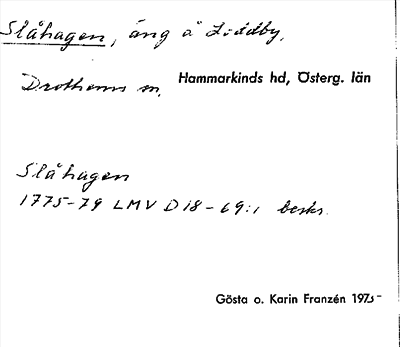 Slåhagen, äng å Liddby,
Drothems sn, Hammarkinds hd, Österg. län
Slåhagen
1775-79 LMV D18-69:1 beskr.
Gösta o. Karin Franzén 1975